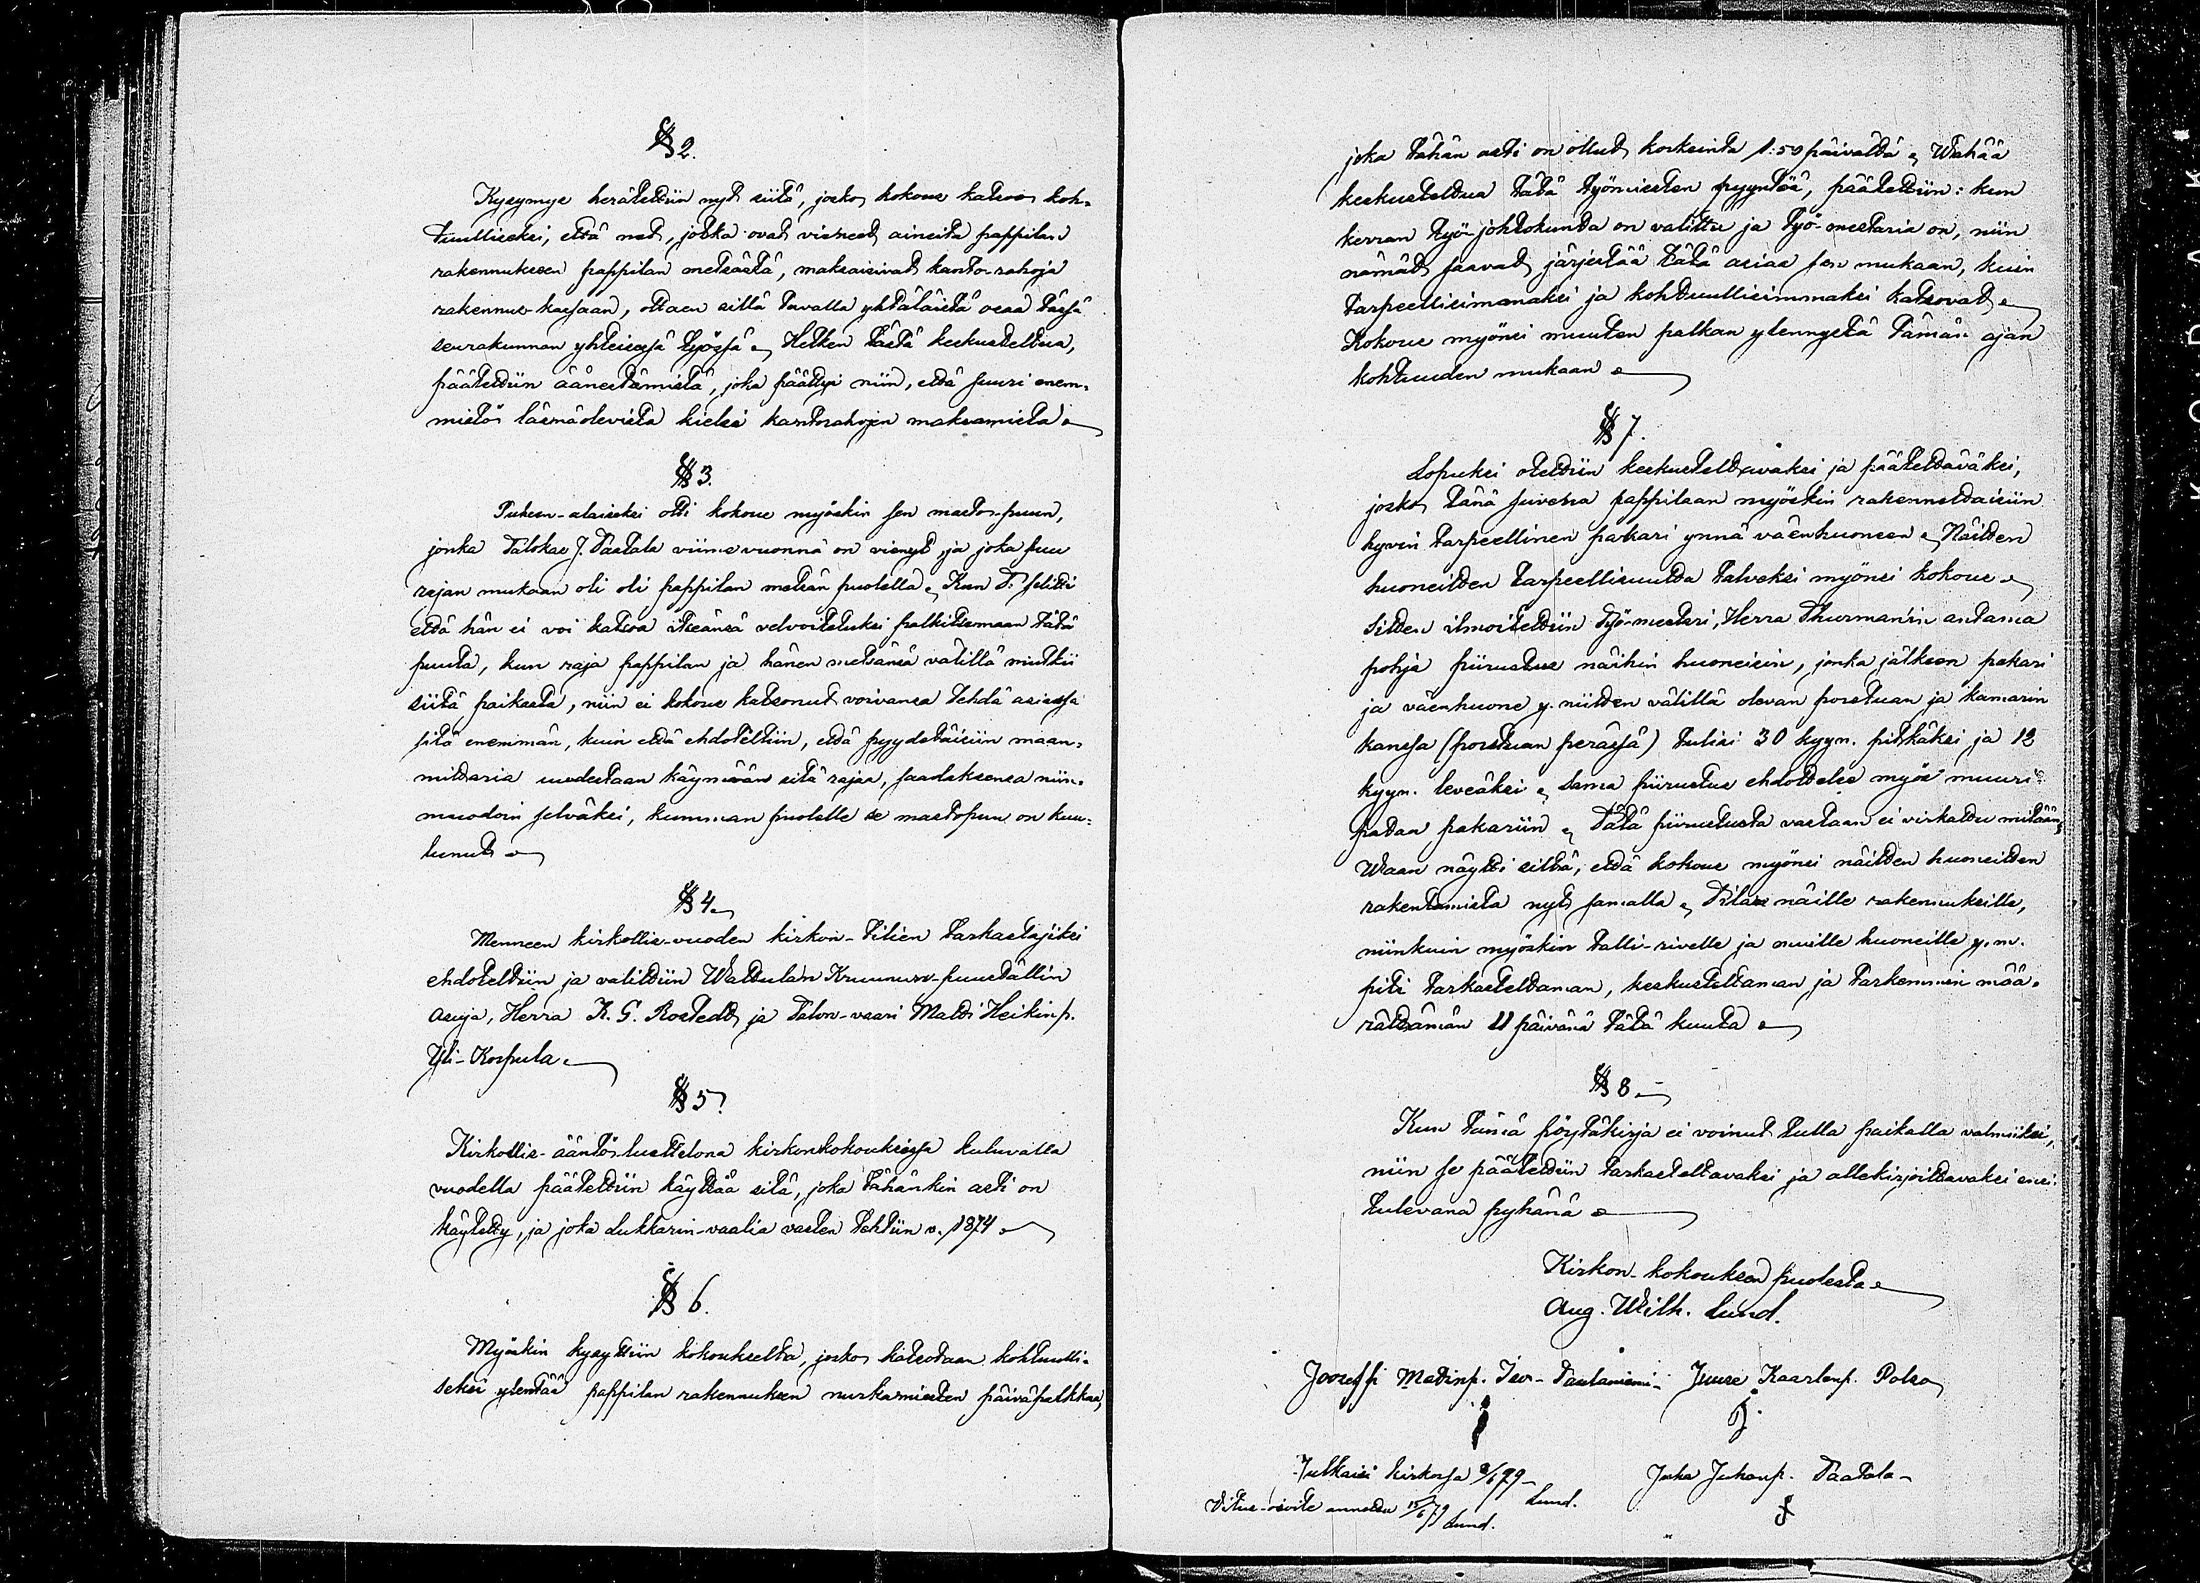 § 2.
Kysymys herätettiin nyt siitä, josko kokous katsoo koh-
tuulliseksi, että net, jotka ovat vieneet aineita pappilan
rakennukseen pappilan metsästä, maksaisivat kanto-rahoja
rakennus-kassaan, ottaen sillä tavalla yhtäläistä osaa tässä
seurakunnan yhteisessä työssä. Hetken tästä keskusteltua,
päätettiin äänestämistä, joka päättyi niin, että suuri enem-
mistö läsnäolevista kielsi kantorahojen maksamista.
§ 3.
Puheen-alaiseksi otti kokous myöskin sen mastos-puun,
jonka Talokas J. Taatala viime vuonna on vienyt, ja joka puu
rajan mukaan oli oli pappilan metsän puolella. Kun T. selitti
että hän ei voi katsoa itseänsä velvoitetuksi palkitsemaan tätä
puuta, kun raja pappilan ja hänen metsänsä välillä mutkii
siitä paikasta, niin ei kokous katsonut voivansa tehdä asiassa
sitä enemmän, kuin että ehdotettiin, että pyydetäisiin maan-
mittaria uudestaan käymään sitä rajaa, saadaksensa niin-
muodoin selväksi, kumman puolelle se mastopuu on kuu-
lunut.
§ 4.
Menneen kirkollis-vuoden kirkon-tilien tarkastajiksi
ehdotettiin ja valittiin Wattulan Kruunun-puustallin
asuja, Herra K. G. Rostedt ja Talon-vaari Matti Heikinp.
Yli-Kospula.
§ 5.
Kirkollis-ääntös-luettelona kirkonkokouksissa kuluvalla
vuodella päätettiin käyttää sitä, joka tähänkin asti on
käytetty, ja joka Lukkarin-vaalia vasten tehtiin v. 1874.
§ 6.
Myöskin kysyttiin kokoukselta, josko katsotaan kohtuulli-
seksi ylentää pappilan rakennuksen nurkamiesten päiväpalkkaa,
joka tähän asti on ollut korkeinta 1:50 päivältä. Wähää
keskusteltua tätä työmiesten pyyntöä, päätettiin: kun
kerran työ-johtokunta on valittu ja työ-mestaria on, niin
nämät saavat järjestää tätä asiaa sen mukaan, kuin
tarpeellisimmaksi ja kohtuullisimmaksi katsovat.
Kokous myönsi muuten palkan ylennystä tämän ajan
kohtuuden mukaan.
§ 7.
Lopuksi otettiin keskusteltavaksi ja päätettäväksi,
josko tänä suvena pappilaan myöskin rakennettaisiin
hyvin tarpeellinen pakari ynnä väenhuoneen. Näitten
huoneitten tarpeellisuutta talveksi myönsi kokous.
Sitten ilmoitettiin Työ-mestari, Herra Thurman'in antama
pohja piirustus näihin huoneisin, jonka jälkeen pakari
ja väenhuone y. niitten välillä olevan porstuan ja kamarin
kanssa (porstuan perässä) tulisi 30 kyyn. pitkäksi ja 12
kyyn. leveäksi. Sama piirustus ehdottelee myös muuri-
padan pakariin. Tätä piirustusta vastaan ei virkattu mitään,
Waan näytti siltä, että kokous myönsi näitten huoneitten
rakentamista nyt samalla. Tilaa näille rakennuksille,
niinkuin myöskin talli-rivelle ja muille huoneille y.m.
piti tarkasteltaman, keskusteltaman ja tarkemmin mää-
rättämän 11 päivänä tätä kuuta.
§ 8.
Kun tämä pöytäkirja ei voinut tulla paikalla valmiiksi,
niin se päätettiin tarkasteltavaksi ja allekirjoittavaksi ensi
tulevana pyhänä.
Kirkon-kokouksen puolesta.
Aug. Wilh. Lund.
Jooseffi Matinp. Iso-Taulaniemi Juuse Kaarlenp. Polso
Julkaisi kirkossa 8/6 79 Juha Juhanp. Taatala
Lund.
Vitus-otvite annettu 15/6 79 Lund.